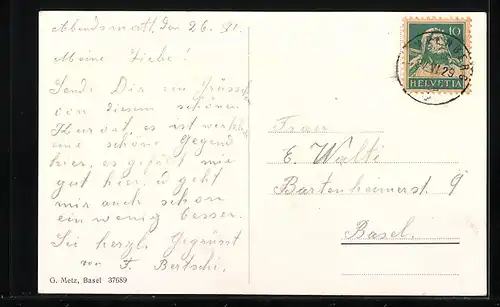 Abendsmatt, den 26. VI.
Meine Liebe!
Sende Dir ein Grüsschen
von diesem schönen
Kurort, es ist wirklich
eine schöne Gegend
hier, es gefällt mir
gut hier, u geht
mir auch schon
ein wenig besser.
Sei herzl. Gegrüsst
von F. Bertschi.
G. Metz, Basel 37689
10
HELVETIA
VI. 29
Frau
E. Wälti
Bartenheimerst. 9
Basel.